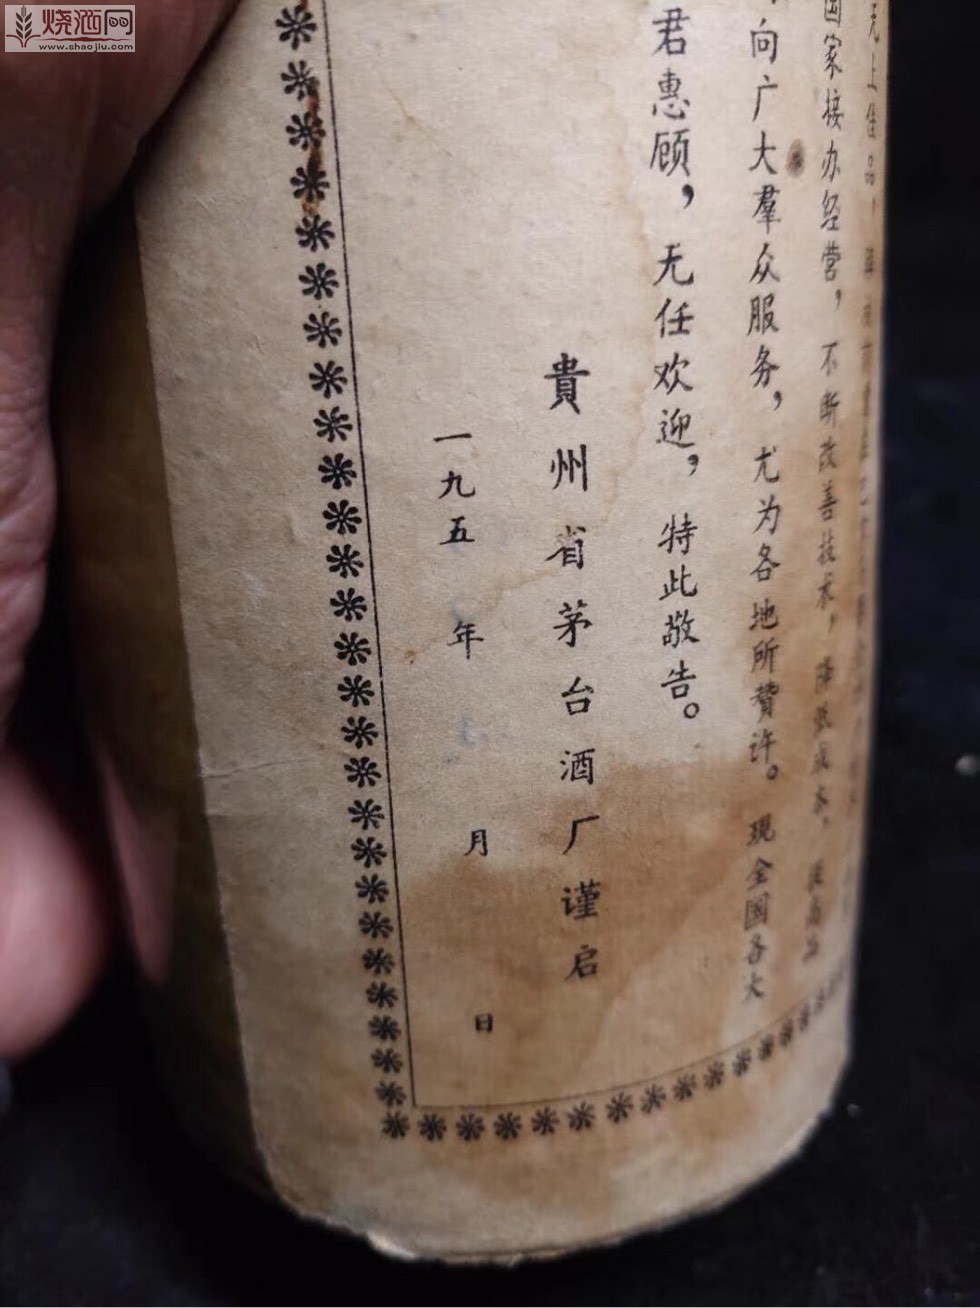 烧酒网
www.shaojiu.com
无上佳品，
国家接办经营，不断改善技术，降低成本，提高品
向广大羣众服务，尤为各地所赞许。现全国各大
君惠顾，无任欢迎，特此敬告。
貴州省茅台酒厂谨启
一九五 年 月 日